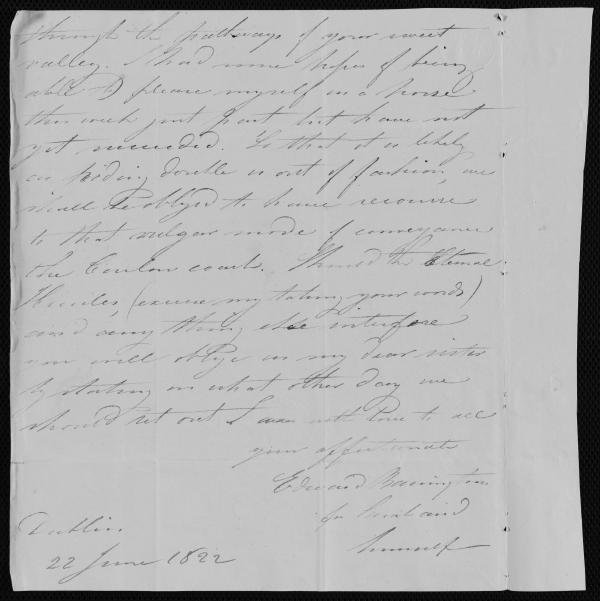 through the pathways of your sweet
valley. I had some hopes of being
able to please myself in a horse
this week just past but have not
yet succeeded. So that it is likely
as riding double is out of fashion, we
shall be obliged to have recourse
to that vulgar mode of conveyance
the coach. Should the Eternal
(excuse my taking your words)
and any thing else interfere
you will oblige us my dear sister
by stating on what other day we
should set out I am with love to all
your affectionate
Edward Barrington
for and
himself
Dublin
22 June 1822